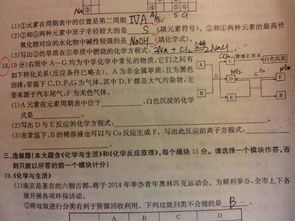 (1)①元素在周期表中的位置是第二周期 ⅣA
(2)②和④两种元素中原子半径较大的是 S (填元素符号),②和④两种元素的最高价
氧化物对应的水化物中碱性较强的是 NaOH (填化学式)。
(3)写出③的单质在⑤单质中燃烧的化学方程式: 2Na + Cl₂ 2NaCl
18.(9分)右图中A~G均为中学化学中常见的物质,它们之间有
如下转化关系(反应条件已略去)。A为非金属单质,且为黑色
固体;常温下C、D、F、G为气体,其中D、F都是大气污染物,主
要来源于汽车尾气,F为无色气体。
(1)A元素在元素周期表中位于 ,白色沉淀的化学
式是 。
(2)写出D与E反应的化学方程式:
(3)在常温下,B的稀溶液也可以与Cu反应生成F。写出此反应的离子方程式:
三、选做题(本大题含《化学与生活》和《化学反应原理》,每个模块15分。请选择一个模块作答,否
则只以所解答的前一个模块计分)
19.《化学与生活》
(1)南京是著名的六朝古都,将于2014年举办青年奥林匹克运动会。为顺利举办,全市上下各
级开展各项环保活动。
①将垃圾进行分类有利于资源回收利用。下列垃圾归类不合理的是 B 。
A B C D